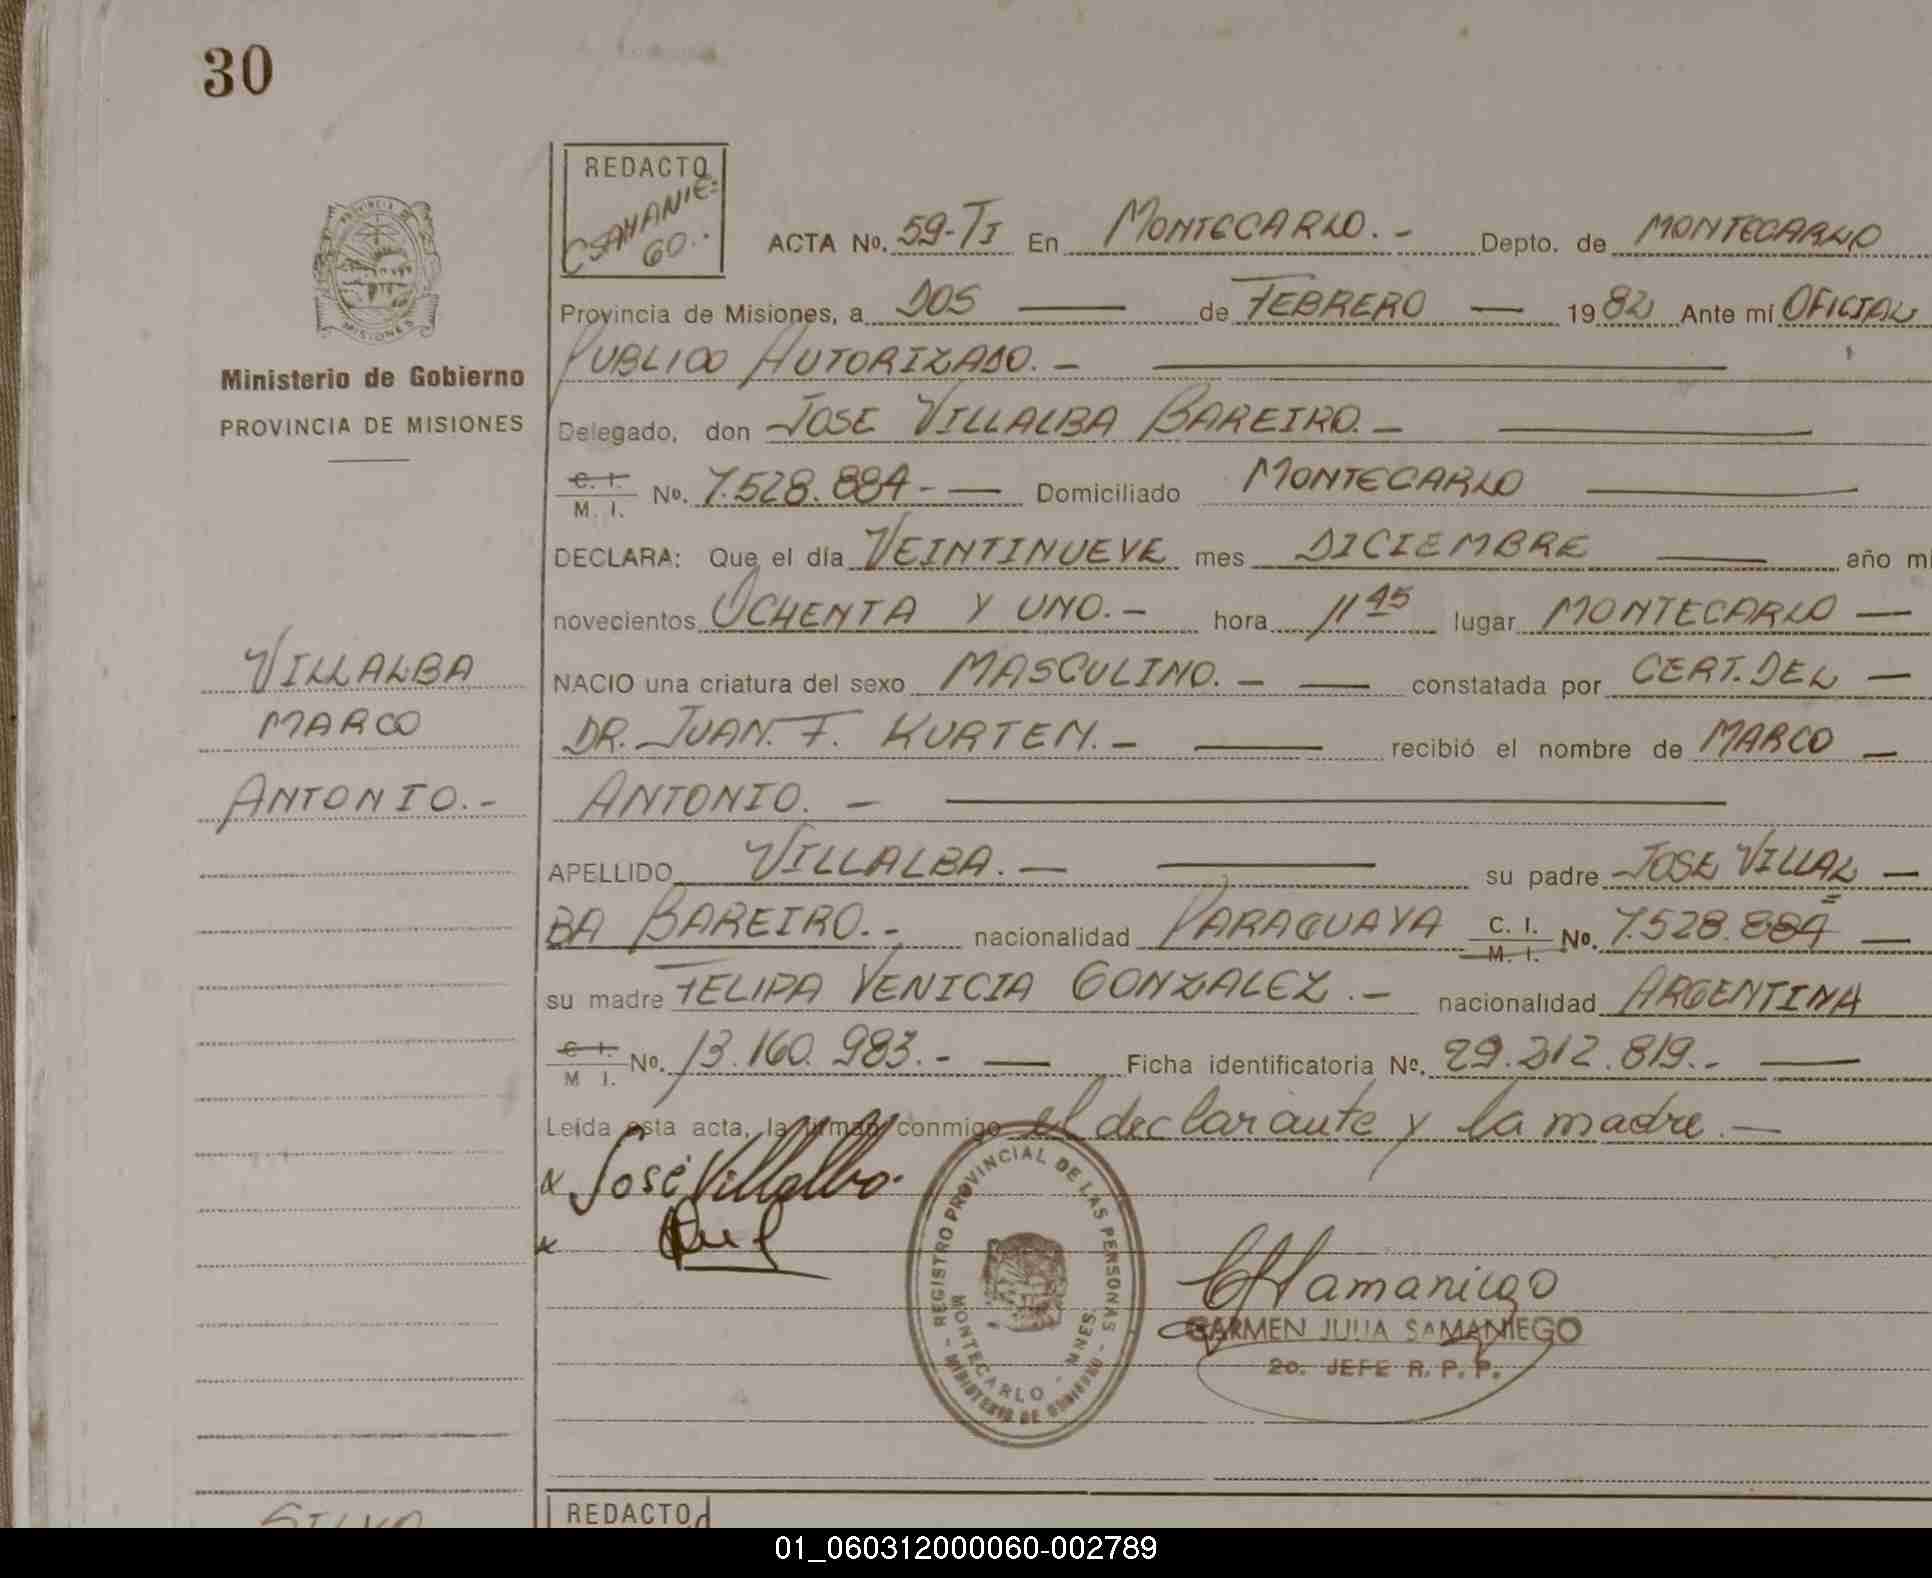 30
REDACTO
CSAMANIE=
GO..
ACTA No. 59-TI En MONTECARLO.- Depto. de MONTECARLO
Provincia de Misiones, a DOS — de FEBRERO — 1982 Ante mí OFICIAL
PUBLICO AUTORIZADO.- —
Ministerio de Gobierno
PROVINCIA DE MISIONES
Delegado, don JOSE VILLALBA BAREIRO.- —
C. I.
M. I. No. 7.528.884.- — Domiciliado MONTECARLO —
DECLARA: Que el día VEINTINUEVE mes DICIEMBRE — año mi
novecientos OCHENTA Y UNO.- hora 11 45 lugar MONTECARLO —
VILLALBA
MARCO
ANTONIO.-
NACIO una criatura del sexo MASCULINO.- — constatada por CERT. DEL —
DR. JUAN. F. KURTEN.- — recibió el nombre de MARCO —
ANTONIO. - —
APELLIDO VILLALBA.- — su padre JOSE VILLAL —
BA BAREIRO.- nacionalidad PARAGUAYA C. I.
M. I. No. 7.528.884 —
su madre FELIPA VENICIA GONZALEZ.- nacionalidad ARGENTINA
C. I.
M I. No. 13.160.983.- — Ficha identificatoria No. 29.212.819.- —
Leída esta acta, la firman conmigo el declarante y la madre.-
x José Villalba.
x
REGISTRO PROVINCIAL DE LAS PERSONAS
MONTECARLO - MNES.
- MINISTERIO DE GOBIERNO -
CJSamaniego
CARMEN JULIA SAMANIEGO
2o. JEFE R. P. P.
REDACTO
01_060312000060-002789